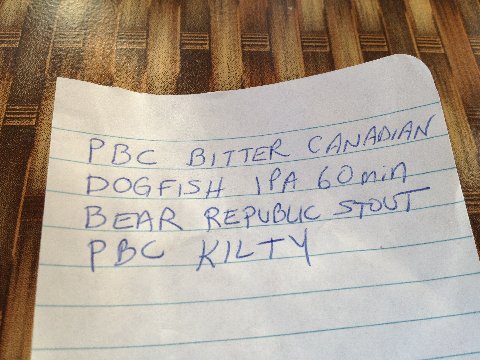 PBC BITTER CANADIAN
DOGFISH IPA 60 min
BEAR REPUBLIC STOUT
PBC KILTY